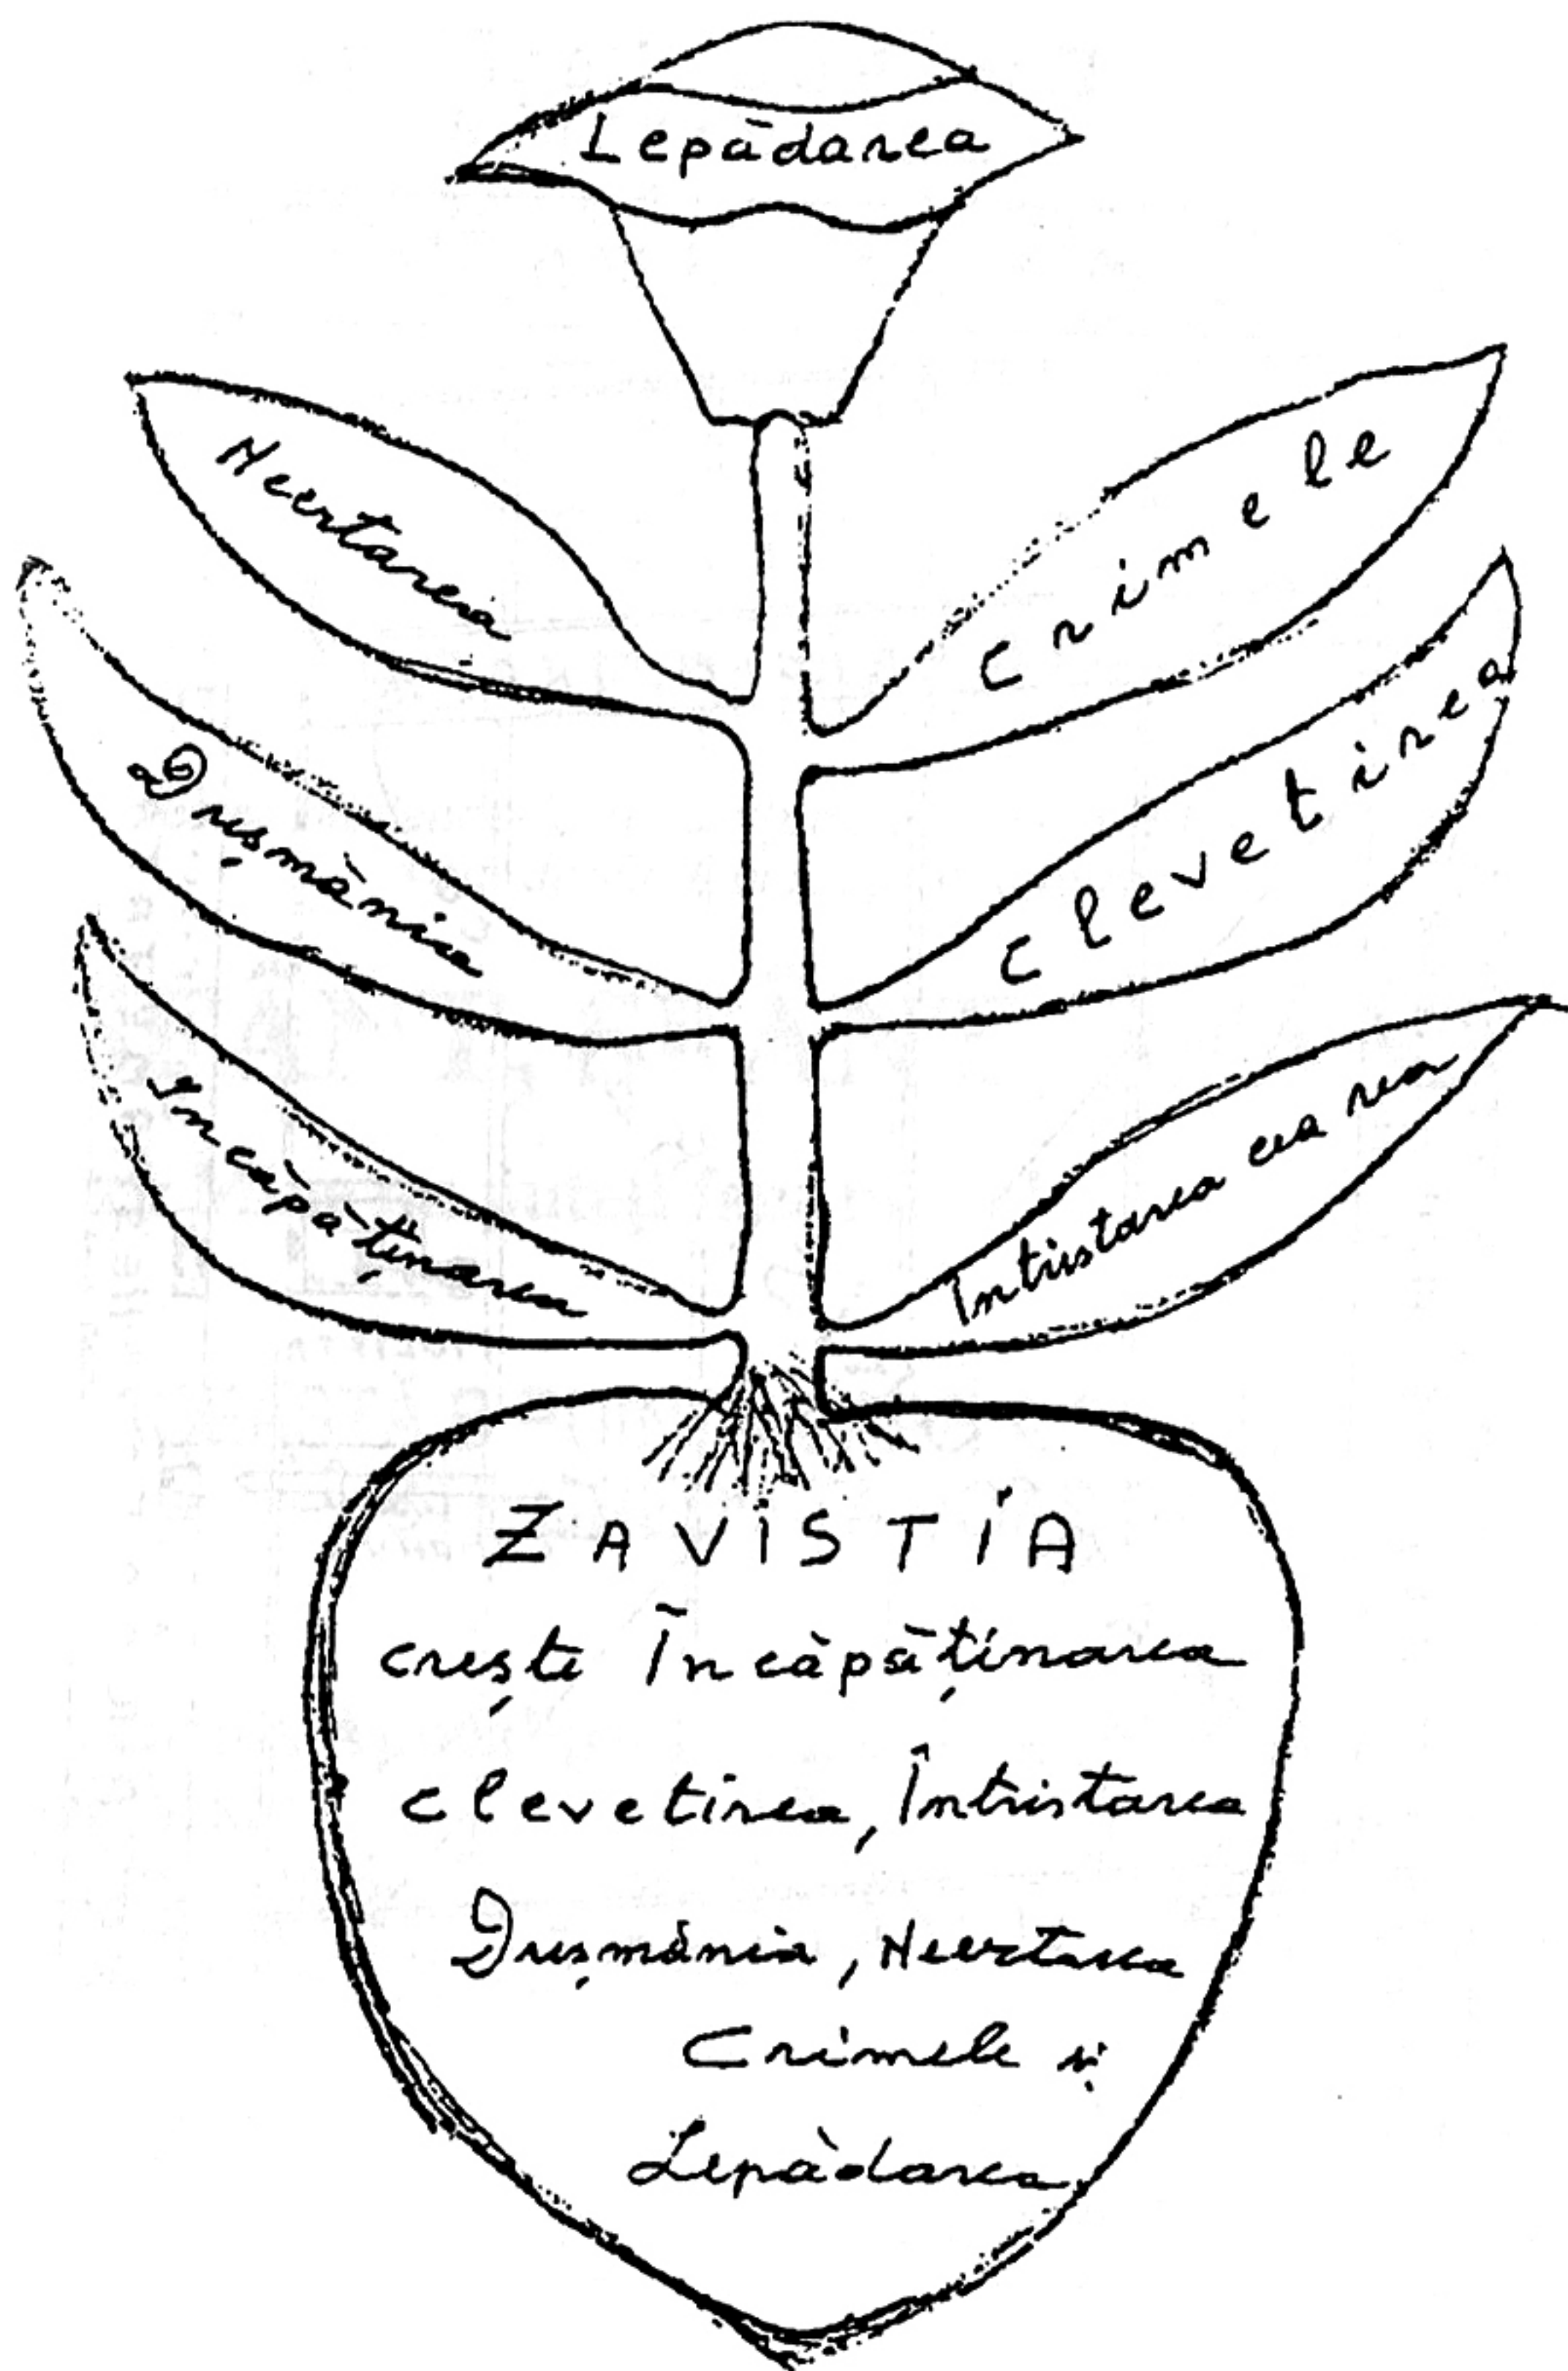 Lepădarea
Neertarea
Crimele
Dușmănia
Clevetirea
Încăpățînarea
Întristarea cea rea
ZAVISTIA
crește Încăpățînarea
clevetirea, Întristarea
Dușmănia, Neertarea
Crimele și
Lepădarea